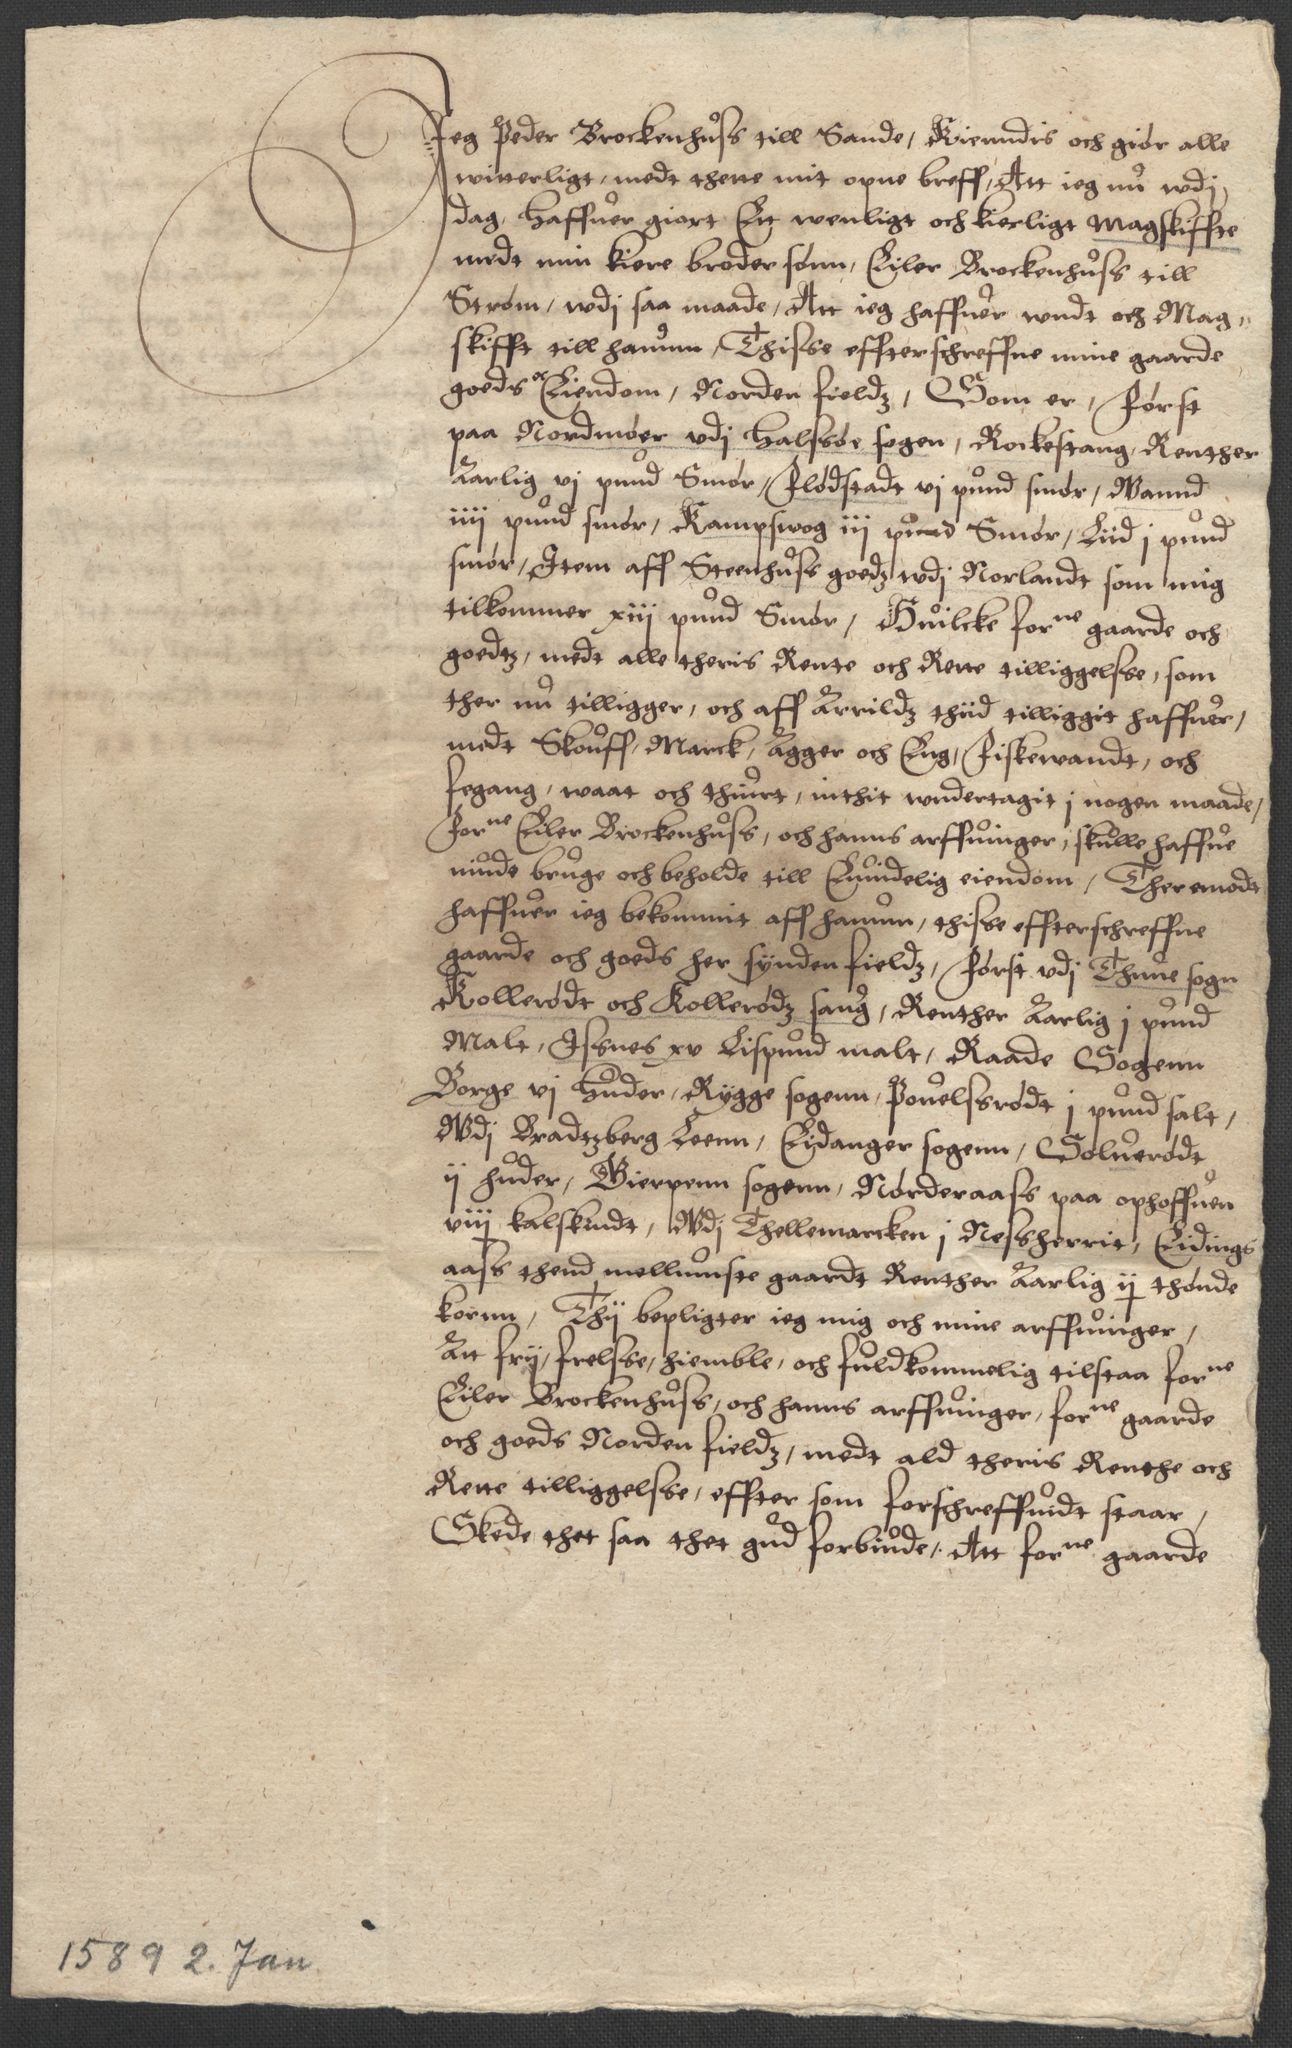 Jeg Peder Brockenhuss till Sande, Kienndis och giør alle
witterligt, medt thette mit opne breff, Att ieg nu wdj
dag, haffuer giort Ett wenligt och kierligt Magskiffte
medt min kiere broder sønn, Eiler Brockenhuss till
Strøm, wdj saa maade, Att ieg haffuer wndt och Mag-
skifft till hanum, Thisse effterschreffne mine gaarde
goeds oc Eiendom, Norden fieldz, Som er, Først
paa Nordmøer vdj Halssøe sogen, Rockestang, Renther
Aarlig vj pund Smør, Flødstadt vj pund smør, Wannd
iiij pund smør, Kampswog iij pund Smør, Liid j pund
smør, Item aff Steenhuss goedz wdj Norlandt som mig
tilkommer xiij pund Smør, Huilcke forne gaarde och
goedtz, medt alle theris Rente och Rette tilliggelsse, som
ther nu tilligger, och aff Arrildz thiid tilliggit haffuer,
medt Skouff, Marck, Agger och Eng, Fiskewandt, och
fegang, waat och thiurt, inthit wndertagit j nogen maade,
Forne Eiler Brockenhuss, och hanns arffuinger, skulle haffue
niude bruge och beholde till Euindelig eiendom, Theremodt
haffuer ieg bekommit aff hanum, thisse effterschreffne
gaarde och goeds her synden fieldz, Først vdj Thune sogn
Kollerødt och Kollerødz saug, Renther Aarlig j pund
Malt, Issnes xv Lispund malt, Raade Sogenn
Borge vj huder, Rygge sogenn, Pouelssrødt j pund salt,
Wdj Bradtzberg Leenn, Eidanger sogenn, Soluerødt
ij huder, Gierpenn sogenn, Nørderaass paa ophoffuen
viij kalskindt, Wdj Thellemarcken j Nessherrit, Eidings
aass thend mellumste gaardt Renther Aarlig ij thønde
kornn, Thij bepligter ieg mig och mine arffuinger,
Att frij, frelsse, hiemble, och fuldkommelig tilstaa forne
Eiler Brockenhuss, och hanns arffuinger, forne gaarde
och goeds Norden fieldz, medt ald theris Renthe och
Rette tilliggelsse, effter som forschreffuidt staar,
Skede thet saa thet gud forbiude, Att forne gaarde
1589 2. Jan